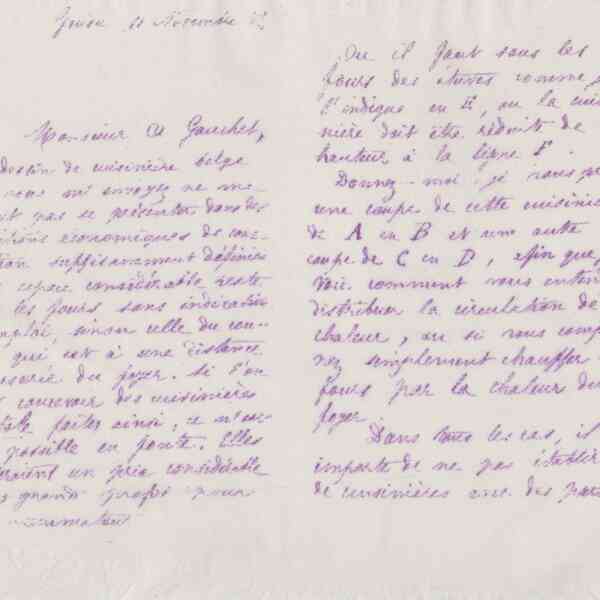 Guise 21 Novembre
Monsieur A Gauchet,
dessin de cuisinière belge
vous m'envoyez ne me
pas se présenter dans des
conditions économiques de
suffisamment définies
espace considérable reste
les fours sans indication
d'emploi, sinon celle du
qui est à une distance
du foyer. Si l'on
concevoir des cuisinières
faites ainsi, ce n'est
possible en fonte. Elles
un prix considérable
grand profit pour
Ou il faut sous les
fours des étuves comme
l'indique en E, ou la cuisi
nière doit être réduite de
hauteur à la ligne F.
Donnez-moi je vous
une coupe de cette cuisiniè
de A en B et une autre
coupe de C en D, afin que
voie comment vous enten
distribuer la circulation de
chaleur, ou si vous comp
nez simplement chauffer
fours par la chaleur du
foyer.
Dans tous les cas, il
importe de ne pas établir
de cuisinières avec des